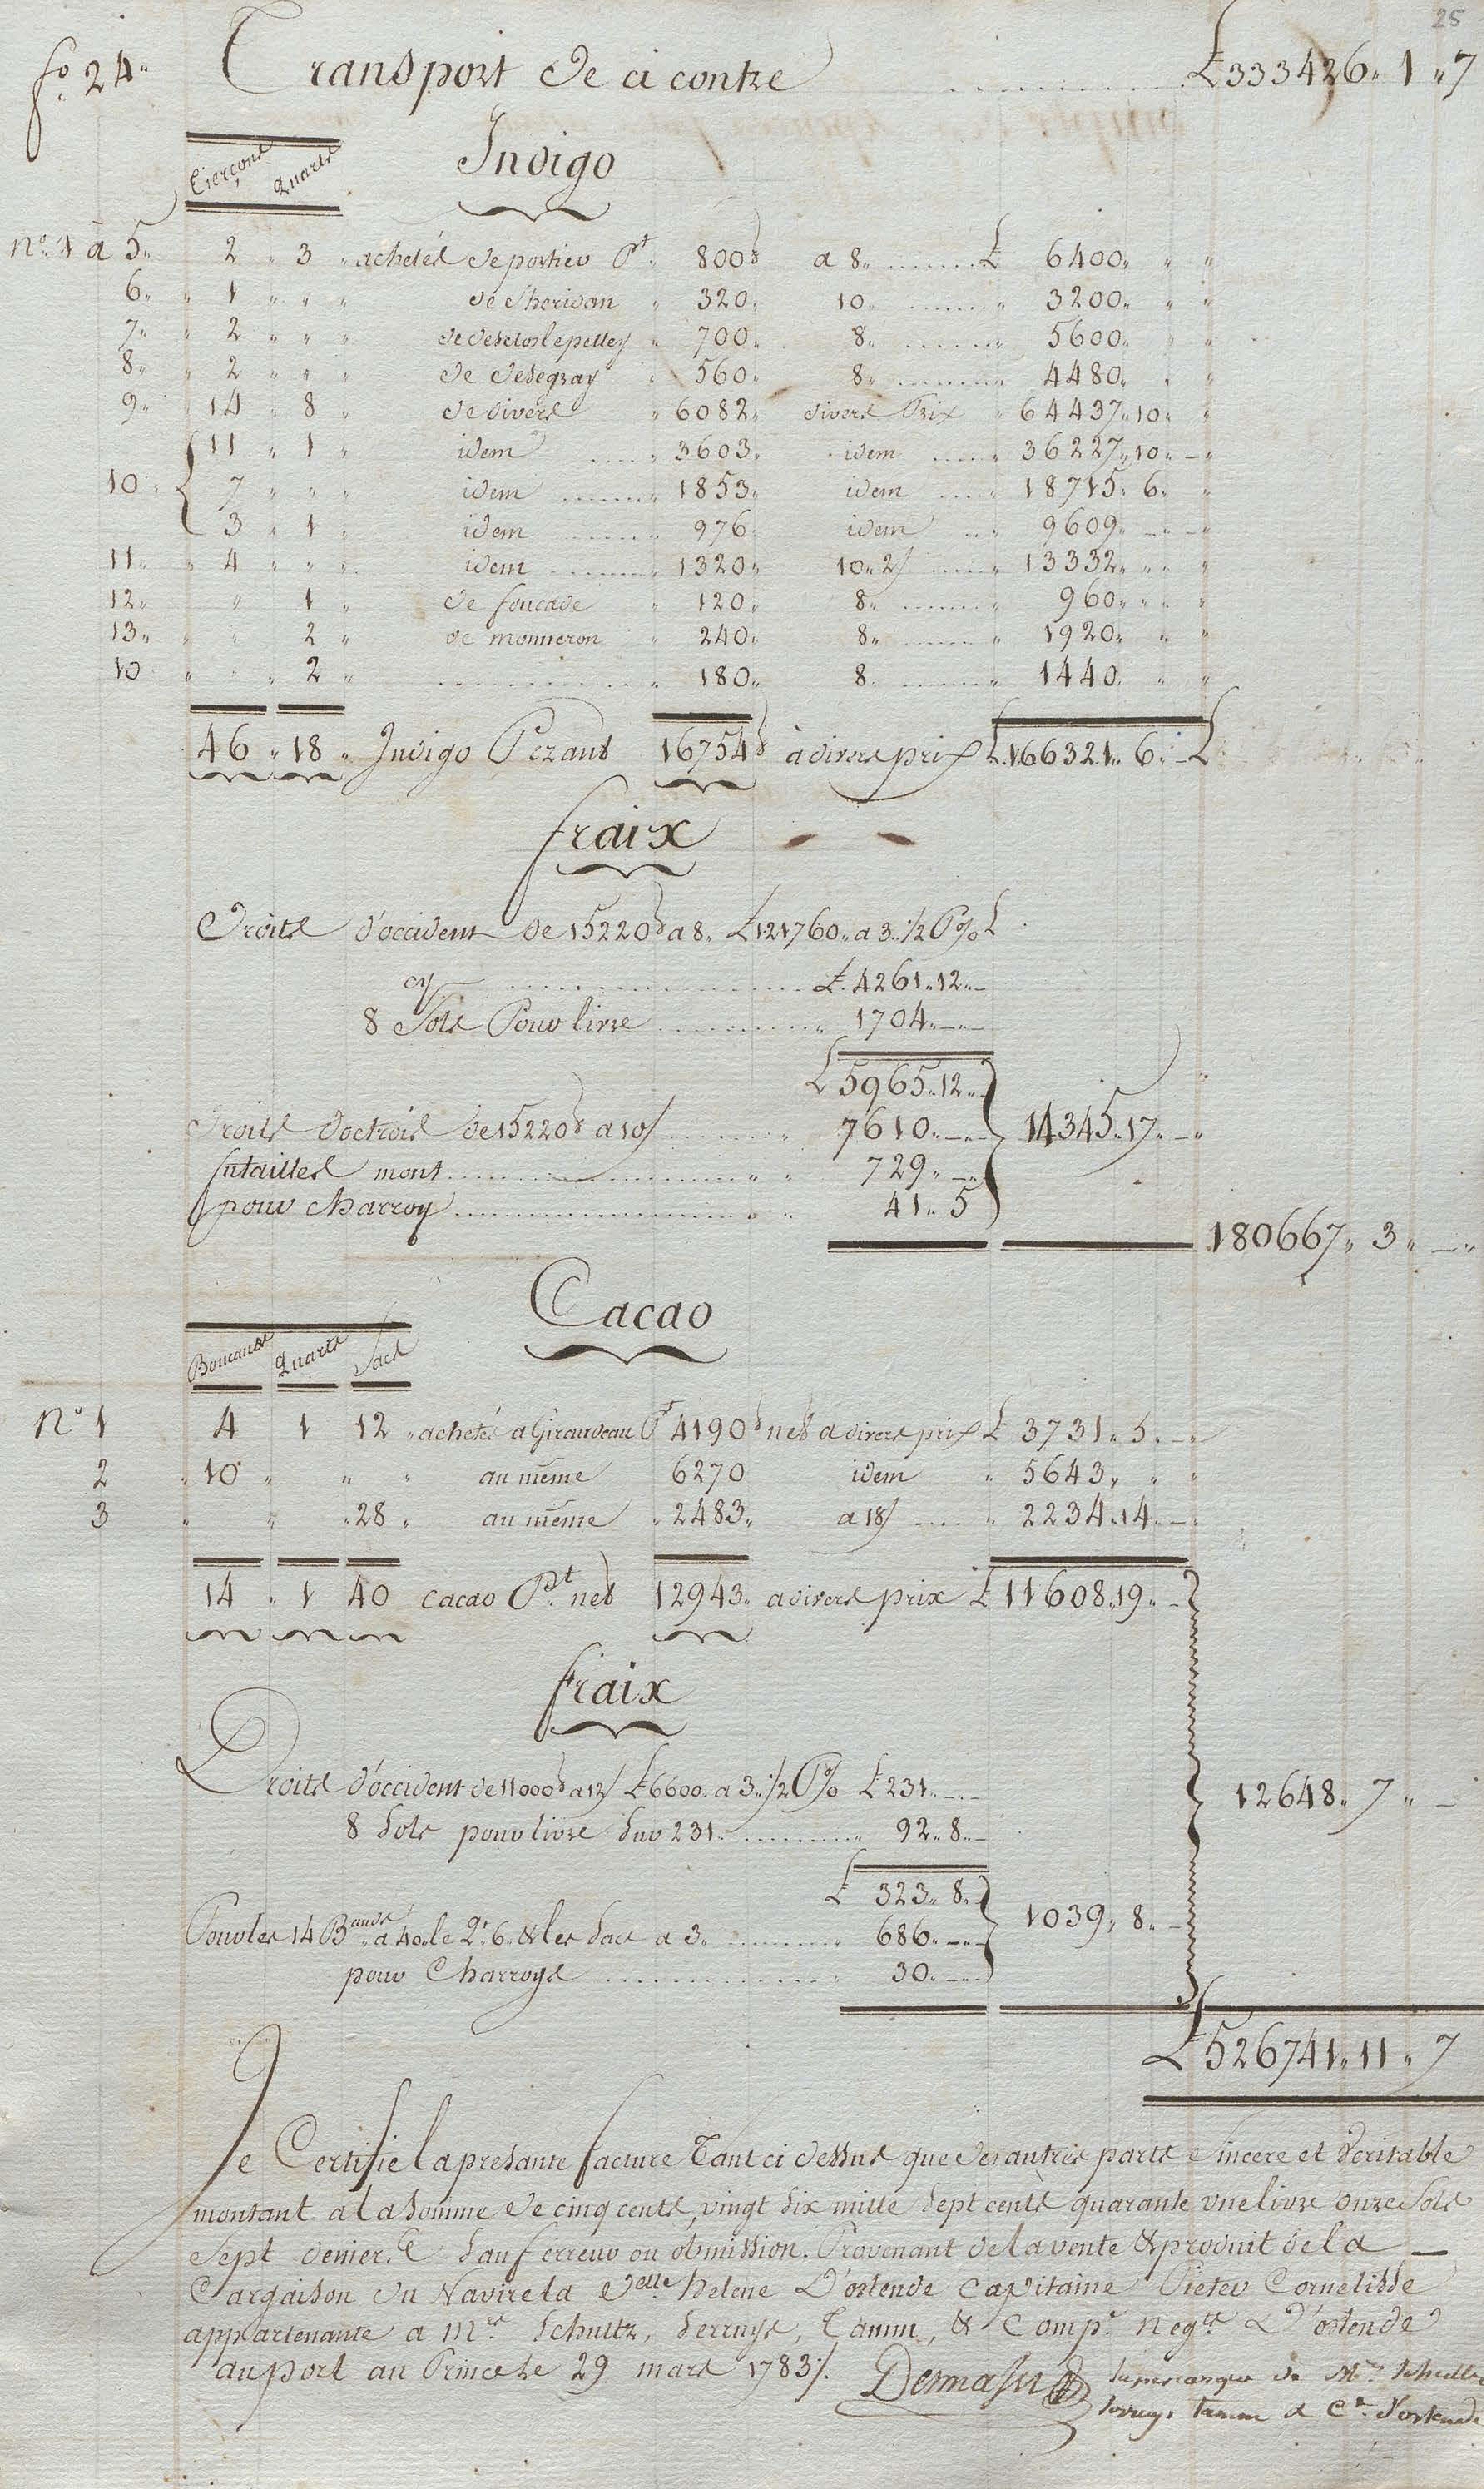 25
fo 24 Transport de ci contre £ 333426 " 1 " 7
Indigo
Tierçons Quarts
No 1 a 5 " 2 " 3 " achetés de portier Pt 800 a 8 " £ 6400 " " "
6 " " 1 " " " de Sheridan " 320 " 10 " " 3200 " " "
7 " " 2 " " " de desclos lepelley " 700 " 8 " " 5600 " " "
8 " " 2 " " " de desegray " 560 " 8 " " 4480 " " "
9 " " 14 " 8 " de divers " 6082 " divers Prix " 64437 " 10 " "
11 " 1 " idem " 3603 " idem " 36227 " 10 " — "
10 " 7 " " " idem " 1853 " idem " 18715 " 6 " "
3 " 1 " idem " 976 " idem " 9609 " — " — "
11 " " 4 " " " idem " 1320 " 10 " 2/ " 13332 " " "
12 " " 1 " de foucade " 120 " 8 " " 960 " " "
13 " " " 2 " de monneron " 240 " 8 " " 1920 " " "
10 " " " 2 " " 180 " 8 " " 1440 " " "
46 " 18 " Indigo Pezant 16754 à divers prix £ 166321 " 6 " — £
fraix
Droits d'occident de 15220 a 8 " £ 121760 " a 3 " 1/2 P% £
cy £ 4261 " 12 " —
8 Sols Pour livre " 1704 " — " —
£ 5965 " 12 " —
Droits doctrois de 15220 a 10/ " 7610 " — " — 14345 " 17 " — "
futailles mont " " 729 " — "
pour charroy " " 41 " 5
180667 " 3 " — "
Cacao
Boucauds Quarts Sacs
No 1 4 1 12 " acheté a Giraudeau Pt 4190 net a divers prix £ 3731 " 5 " — "
2 " 10 " " " au même 6270 idem " 5643 " " "
3 " " " 28 " au même " 2483 " a 18/ " 2234 " 14 " — "
14 " 1 40 cacao Pt net 12943 " a divers prix £ 11608 " 19 " —
fraix
Droits d'occident de 11000 a 12/ £ 6600 " a 3 " 1/2 P% £ 231 " — " — 12648 " 7 " —
8 Sols pour livre Sur 231 " " 92 " 8 " —
£ 323 " 8 " —
Pour les 14 Bauds a 40 " le Qt 6 " & les Sacs a 3 " " 686 " — " — 1039 " 8 " —
pour Charroys " 30 " — " —
£ 526741 " 11 " 7
Je Certifie la presante facture Tant ci dessus que des autres parts Sincere et Veritable
montant a la Somme de cinq cents, vingt Six mille Sept cents quarante une livre onze Sols
Sept deniers Sauf erreur ou obmission. Provenant de la vente & produit de la —
Cargaison du Navire la Delle helene D'ostende Capitaine Pieter Cornelisse
appartenante a Mrs Schultz, Serruys, Tamm, & Compe Negts D'ostende
au port au Prince le 29 mars 1783 /.
Supercargue de Mrs Schultz
Serruys Tamm & Ce d'ostende